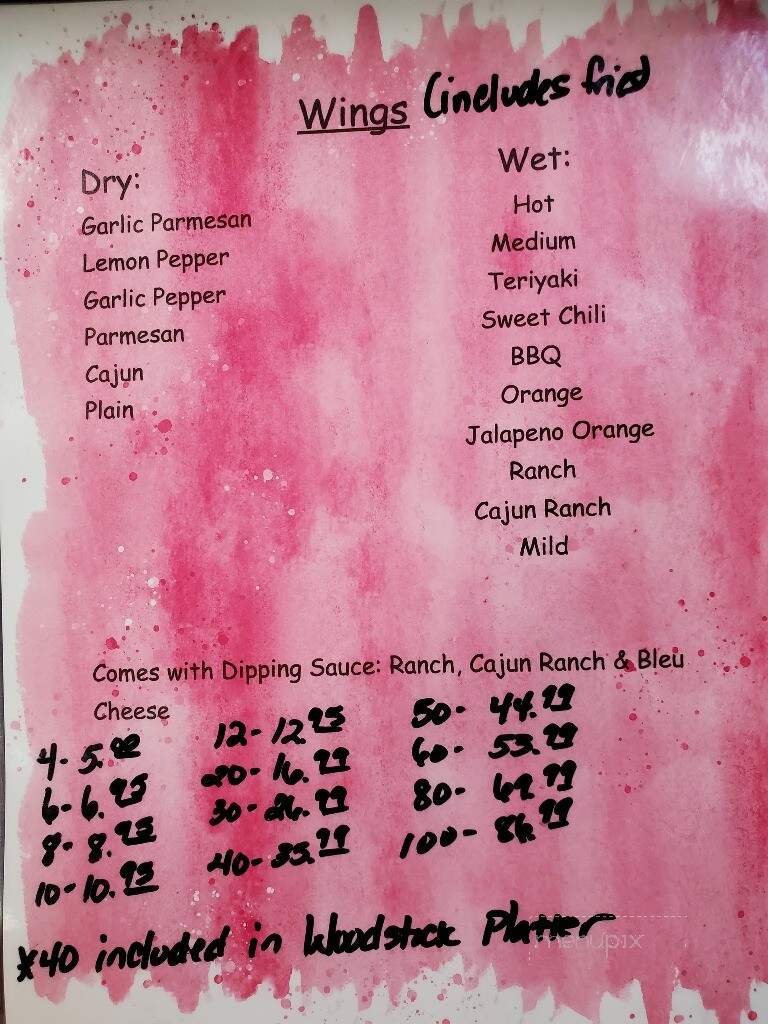 Wings (includes fries
Dry:
Garlic Parmesan
Lemon Pepper
Garlic Pepper
Parmesan
Cajun
Plain
Wet:
Hot
Medium
Teriyaki
Sweet Chili
BBQ
Orange
Jalapeno Orange
Ranch
Cajun Ranch
Mild
Comes with Dipping Sauce: Ranch, Cajun Ranch & Bleu
Cheese
4- 5.
6- 6.95
8- 8.95
10- 10.95
12- 12.95
20- 16.99
30- 26.99
40- 35.99
50- 44.99
60- 53.99
80- 69.99
100- 86.99
*40 included in Woodstock Platter
menupix